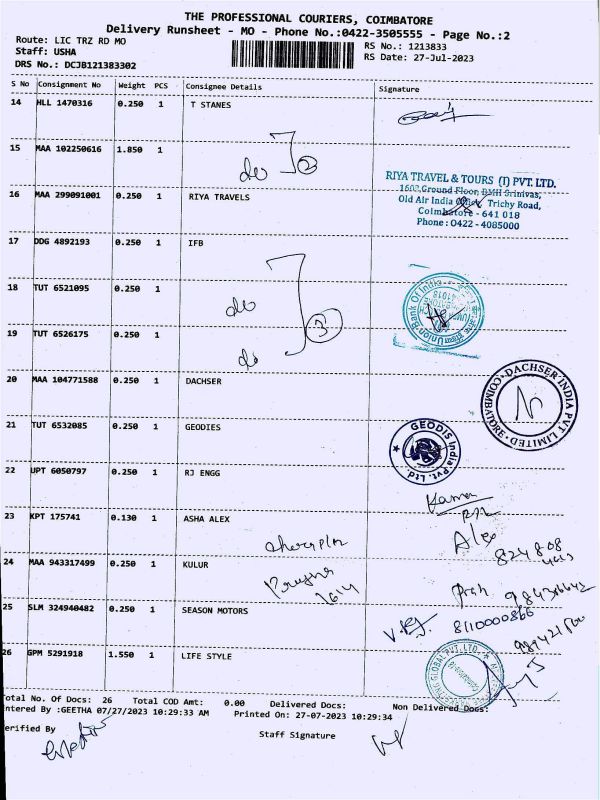 THE PROFESSIONAL COURIERS, COIMBATORE
Delivery Runsheet - MO - Phone No.:0422-3505555 - Page No.:2
Route: LIC TRZ RD MO
RS No.: 1213833
Staff: USHA
RS Date: 27-Jul-2023
DRS No.: DCJB121383302
S No Consignment No Weight PCS Consignee Details Signature
14 HLL 1470316 0.250 1 T STANES
15 MAA 102250616 1.850 1
do 2
RIYA TRAVEL & TOURS (I) PVT. LTD.
16 MAA 299091001 0.250 1 RIYA TRAVELS
1602, Ground Floor, DMH Srinivas,
Old Air India Office, Trichy Road,
Coimbatore - 641 018
Phone : 0422 - 4085000
17 DDG 4892193 0.250 1 IFB
18 TUT 6521095 0.250 1
do
Union Bank Of India
3
19 TUT 6526175 0.250 1
do
20 MAA 104771588 0.250 1 DACHSER
DACHSER INDIA PVT. LIMITED
COIMBATORE
21 TUT 6532085 0.250 1 GEODIES
GEODIS India Pvt. Ltd.
22 UPT 6050797 0.250 1 RJ ENGG
23 KPT 175741 0.130 1 ASHA ALEX
Alex
824808
24 MAA 943317499 0.250 1 KULUR
25 SLM 324940482 0.250 1 SEASON MOTORS
8110000866
26 GPM 5291918 1.550 1 LIFE STYLE
GLOBAL PVT. LTD.
Total No. Of Docs: 26 Total COD Amt: 0.00 Delivered Docs: Non Delivered Docs:
Entered By :GEETHA 07/27/2023 10:29:33 AM Printed On: 27-07-2023 10:29:34
Verified By
Staff Signature